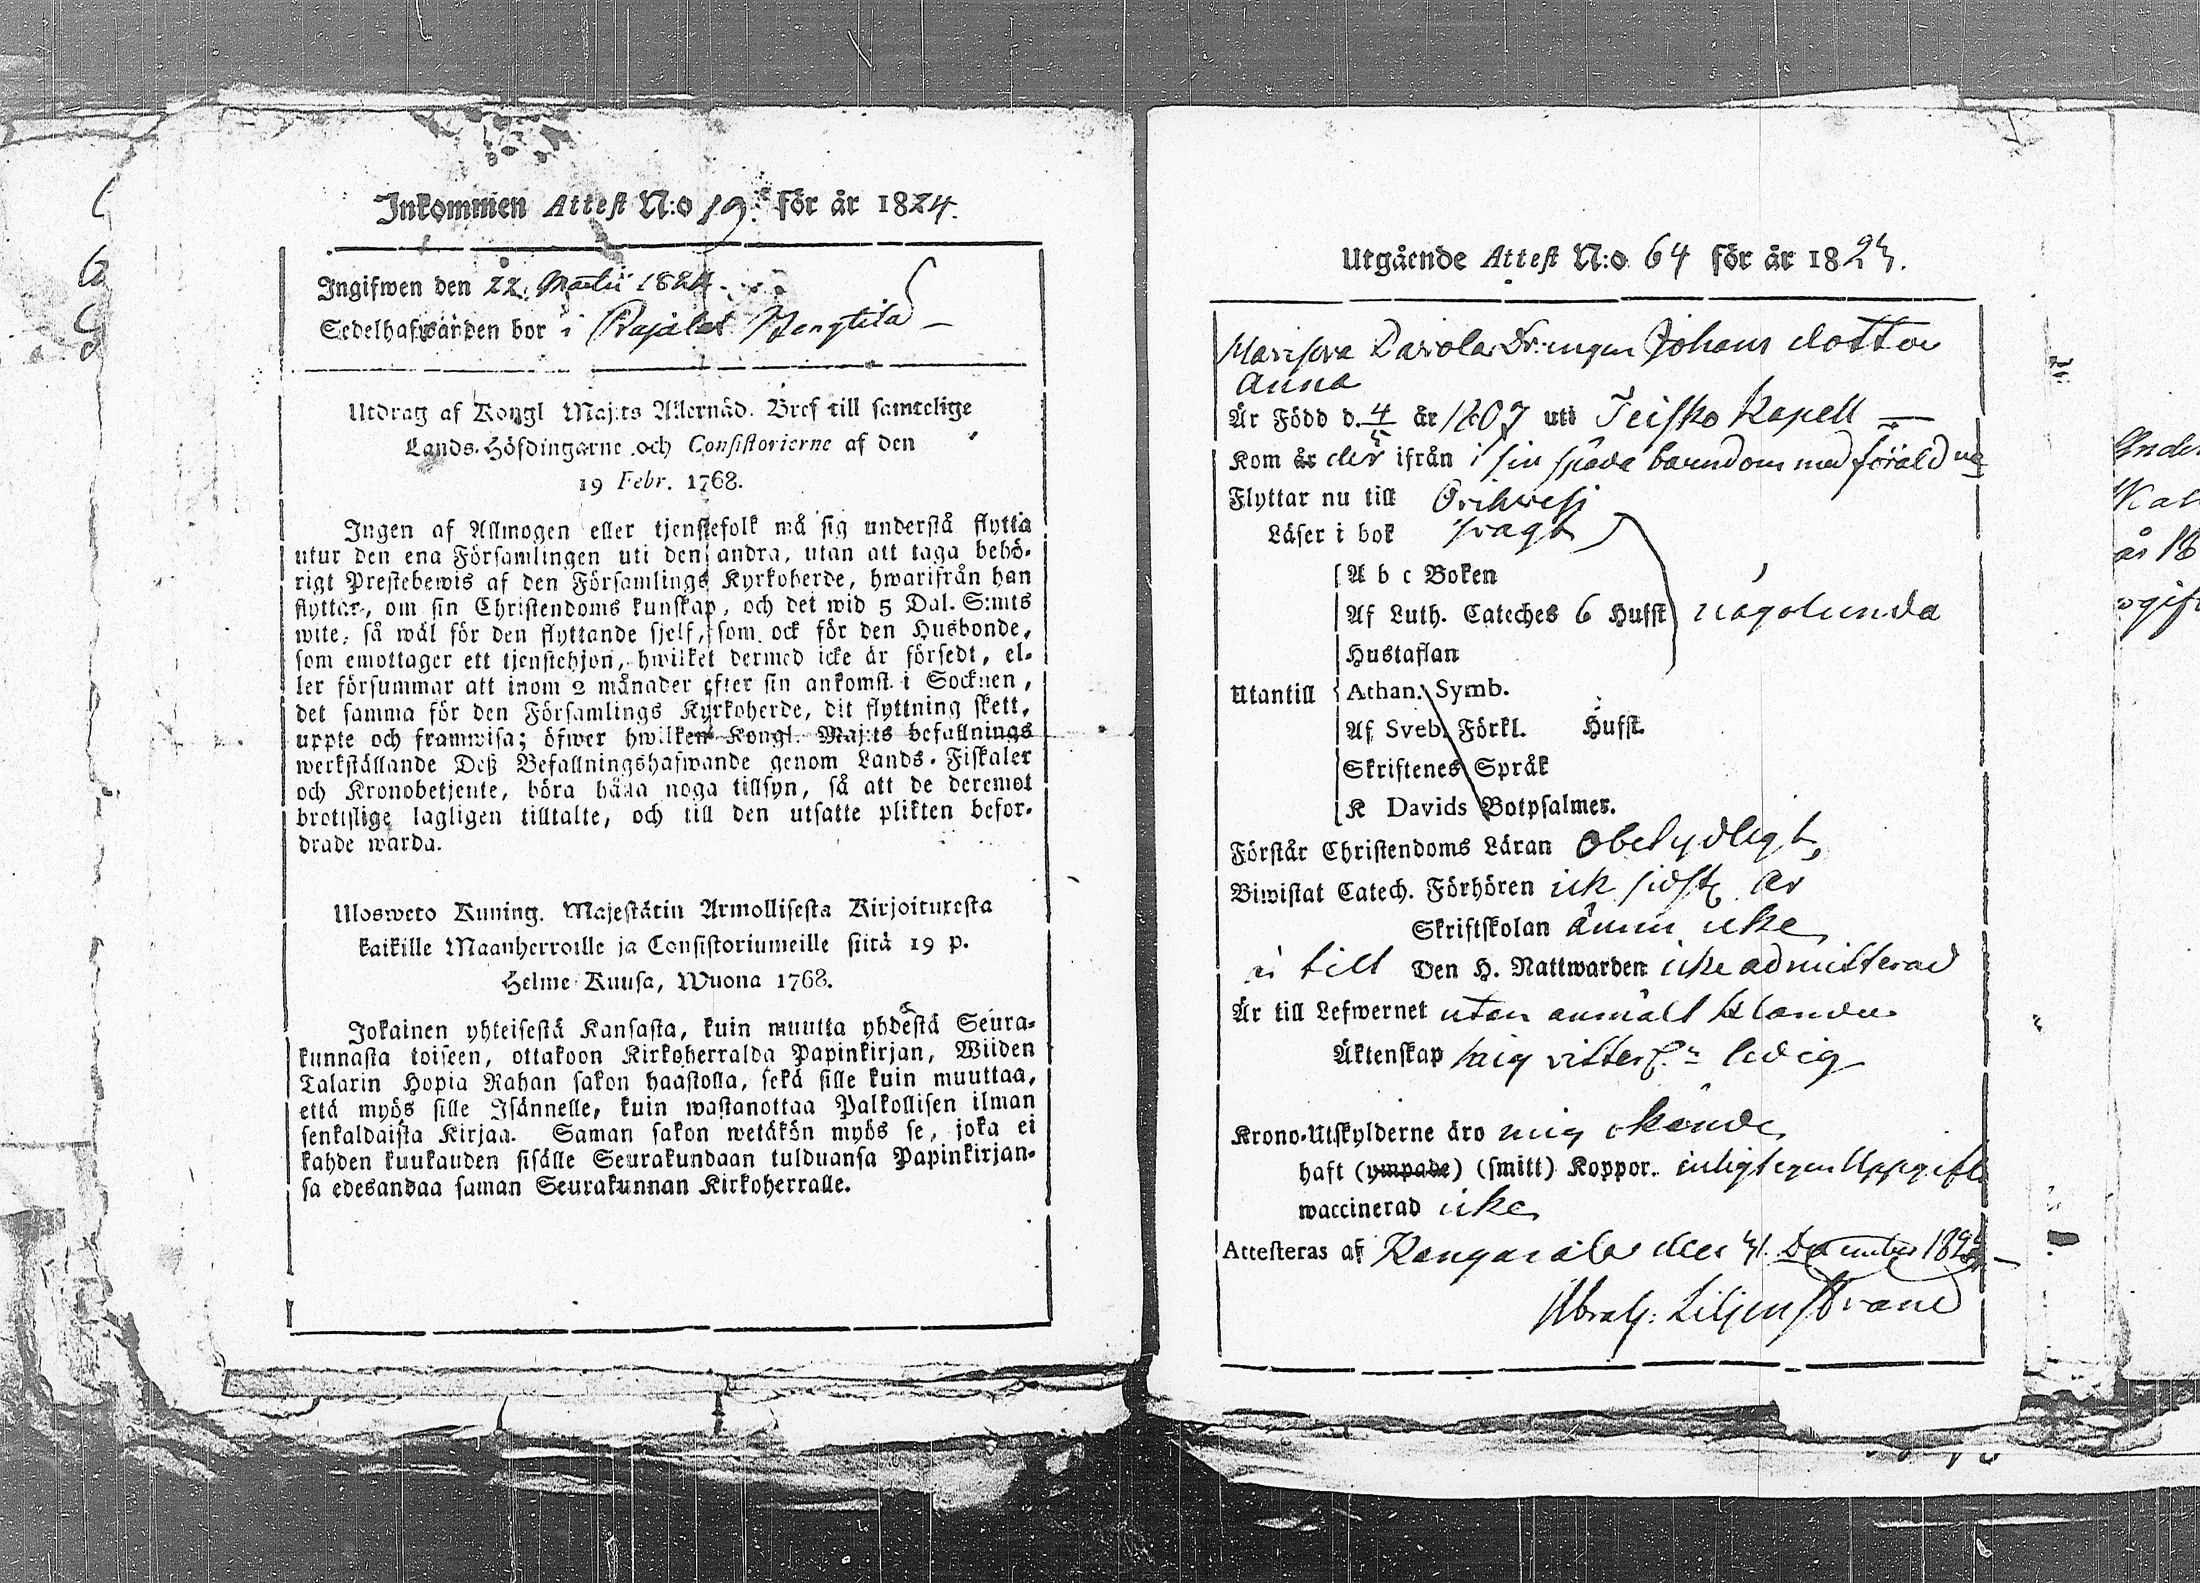 Inkommen Attest N:o 19. för år 1824.
Ingifwen den 22. Martii 1824.
Sedelhafwarden bor i
Utdrag af Kongl Maj:ts Allernåd. Bref till samtelige
Lands-Höfdingarne och Consistorierne af den
19 Febr. 1768.
Ingen af Allmogen eller tjenstefolk må sig understå flytta
utur den ena Församlingen uti den andra, utan att taga behö-
rigt Prestebewis af den Församlings Kyrkoherde, hwarifrån han
flyttar, om sin Christendoms kunskap, och det wid 5 Dal. S:mts
wite, så wäl för den flyttande sjelf, som ock för den Husbonde,
som emottager ett tjenstehjon, hwilket dermed icke är försedt, el-
ler försummar att inom 2 månader efter sin ankomst i Socknen,
det samma för den Församlings Kyrkoherde, dit flyttning skett,
uppte och framwisa; öfwer hwilken Kongl. Maj:ts befallnings
werkställande Deß Befallningshafwande genom Lands-Fiskaler
och Kronobetjente, böra hålla noga tillsyn, så att de deremot
brottslige lagligen tilltalte, och till den utsatte plikten befor-
drade warda.
Ulosweto Kuning. Majestätin Armollisesta Kirjoituxesta
kaikille Maanherroille ja Consistoriumeille siitä 19 p.
Helme Kuusa, Wuona 1768.
Jokainen yhteisestä Kansasta, kuin muutta yhdestä Seura-
kunnasta toiseen, ottakoon Kirkoherralda Papinkirjan, Wiiden
Talarin Hopia Rahan sakon haastolla, sekä sille kuin muuttaa,
että myös sille Isännelle, kuin wastanottaa Palkollisen ilman
senkaldaista Kirjaa. Saman sakon wetäkön myös se, joka ei
kahden kuukauden sisälle Seurakundaan tulduansa Papinkirjan-
sa edesandaa saman Seurakunnan Kirkoherralle.
Utgående Attest N:o 64 för år 182
Johans dotter
Anna
Är Född d. 4/5 år 1807 uti Teisko Kapell
Kom år der ifrån i sin späda barndom med föräldrar
Flyttar nu till Orihwesi
Läser i bok swagt
A b c Boken
Af Luth. Cateches 6 Hufst någolunda
Hustaflan
Utantill Athan. Symb.
Af Sveb. Förkl. Hufst.
Skriftenes Språk
K Davids Botpsalmer.
Förstår Christendoms Läran Obetydligt
Biwistat Catech. Förhören sidst. år
Skriftskolan ännu icke
till Den H. Nattwarden icke admitterad
Är till Lefwernet utan anmält klander
Äktenskap mig vitterl. ledig
Krono-Utskylderne äro mig okände
haft (ympade) (smitt) Koppor. enligt egen Uppgift
waccinerad icke
Attesteras af Kangasala den 31. December 182
Abrah: Liljenstrand